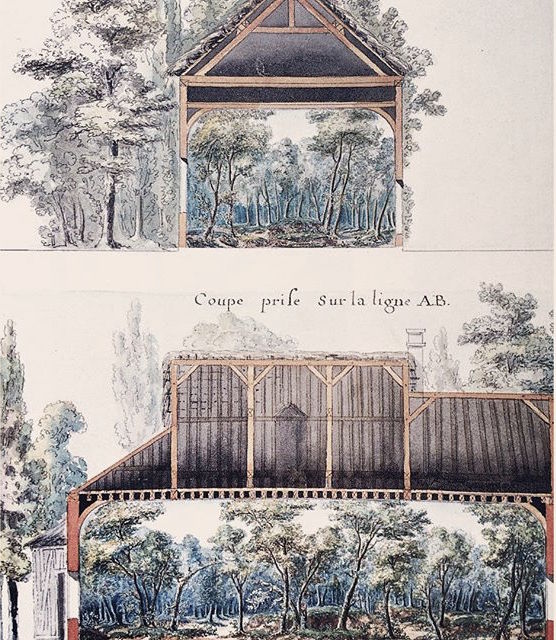 Coupe priſe Sur la ligne A.B.